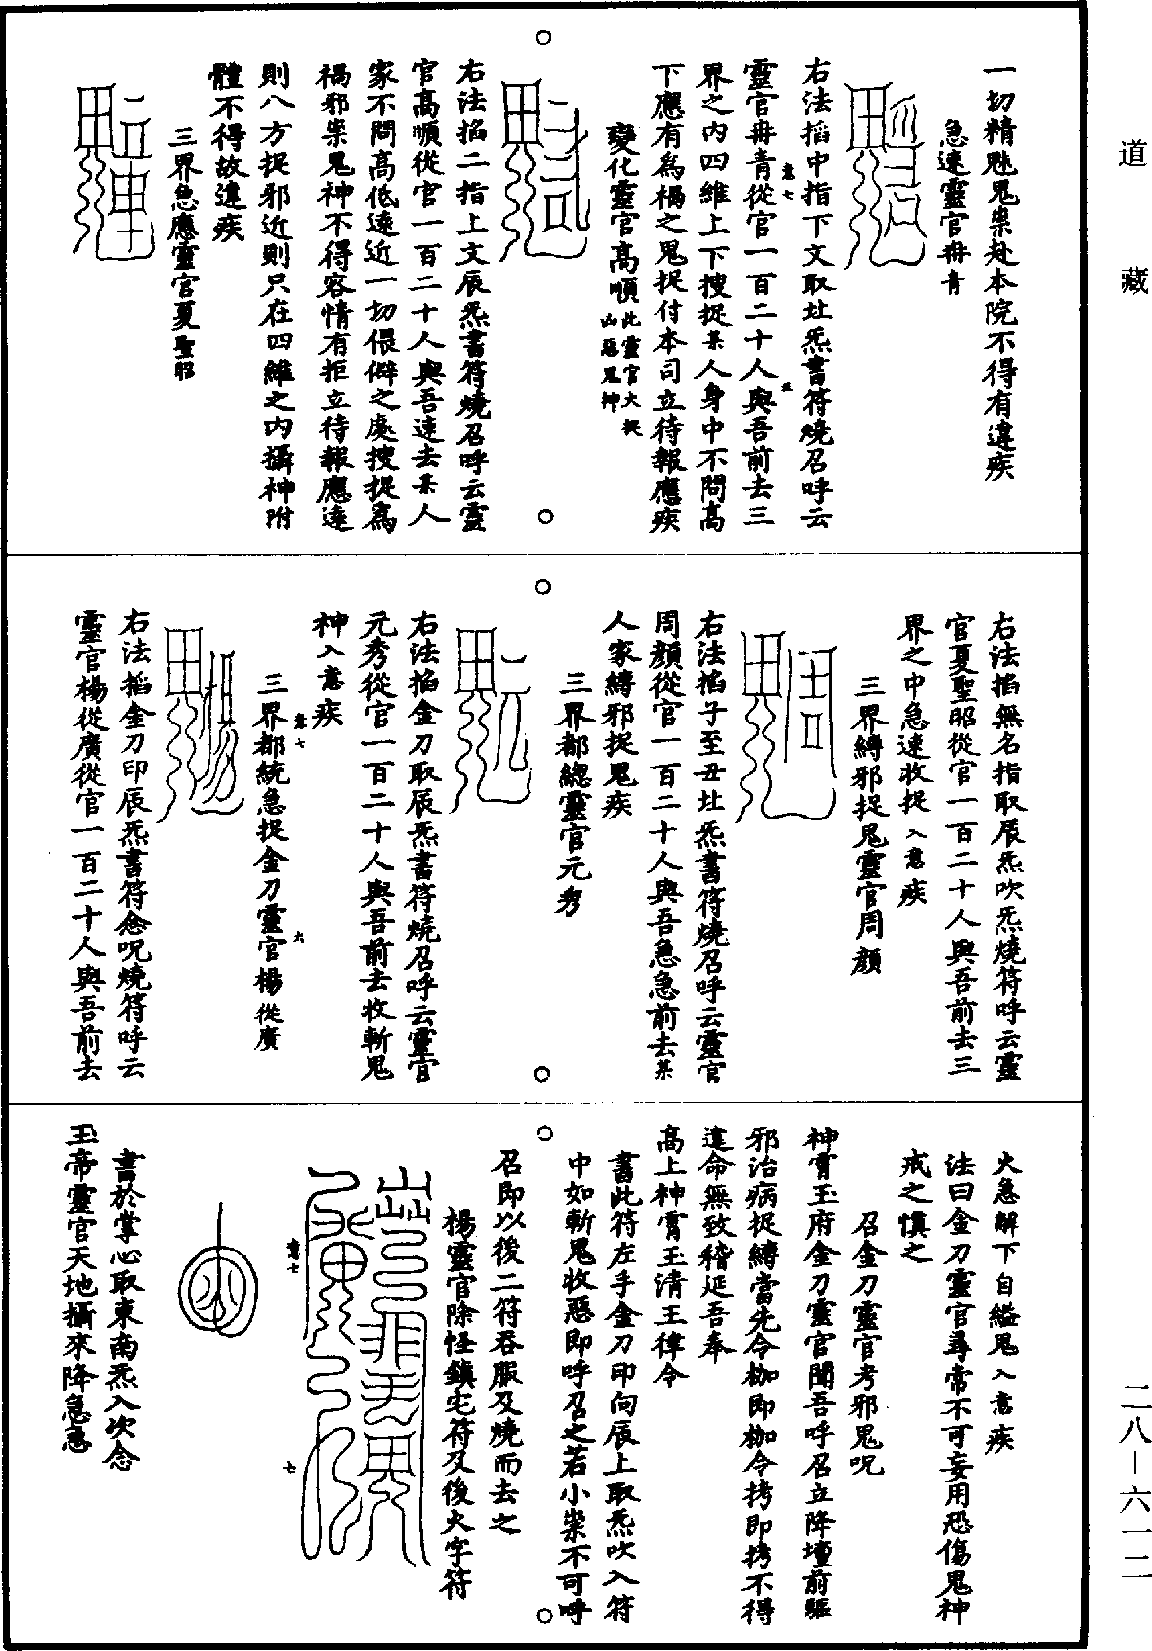 道藏
一切精魅鬼祟赴本院不得有違疾
急速靈官冉青
右法搯中指下文取壯炁書符燒召呼云
靈官冉青從官一百二十人與吾前去三
界之內四維上下搜捉某人身中不問高
下應有為禍之鬼捉付本司立待報應疾
變化靈官高順此靈官大捉
山惡鬼神
右法掐二指上文辰炁書符燒召呼云靈
官高順從官一百二十人與吾速去某人
家不問高低遠近一切偎僻之處搜捉為
禍邪祟鬼神不得容情有拒立待報應遠
則八方捉邪近則只在四維之內攝神附
體不得故違疾
三界急應靈官夏聖昭
右法掐無名指取辰炁吹炁燒符呼云靈
官夏聖昭從官一百二十人與吾前去三
界之中急速收捉入意疾
三界縛邪捉鬼靈官周顏
右法掐子至丑壯炁書符燒召呼云靈官
周顏從官一百二十人與吾急急前去某
人家縛邪捉鬼疾
三界都總靈官元秀
右法掐金刀取辰炁書符燒召呼云靈官
元秀從官一百二十人與吾前去收斬鬼
神入意疾
三界都統急捉金刀靈官楊從廣
右法搯金刀印辰炁書符念呪燒符呼云
靈官楊從廣從官一百二十人與吾前去
火急解下自縊鬼入意疾
法曰金刀靈官尋常不可妄用恐傷鬼神
戒之慎之
召金刀靈官考邪鬼呪
神霄玉府金刀靈官聞吾呼召立降壇前驅
邪治病捉縛當先令枷即枷令拷即拷不得
違命無致稽延吾奉
高上神霄玉清王律令
書此符左手金刀印向辰上取炁吹入符
中如斬鬼收惡即呼召之若小祟不可呼
召即以後二符吞服及燒而去之
楊靈官除怪鎮宅符及後火字符
書於掌心取東南炁入次念
玉帝靈官天地攝來降急急
二八—六一二